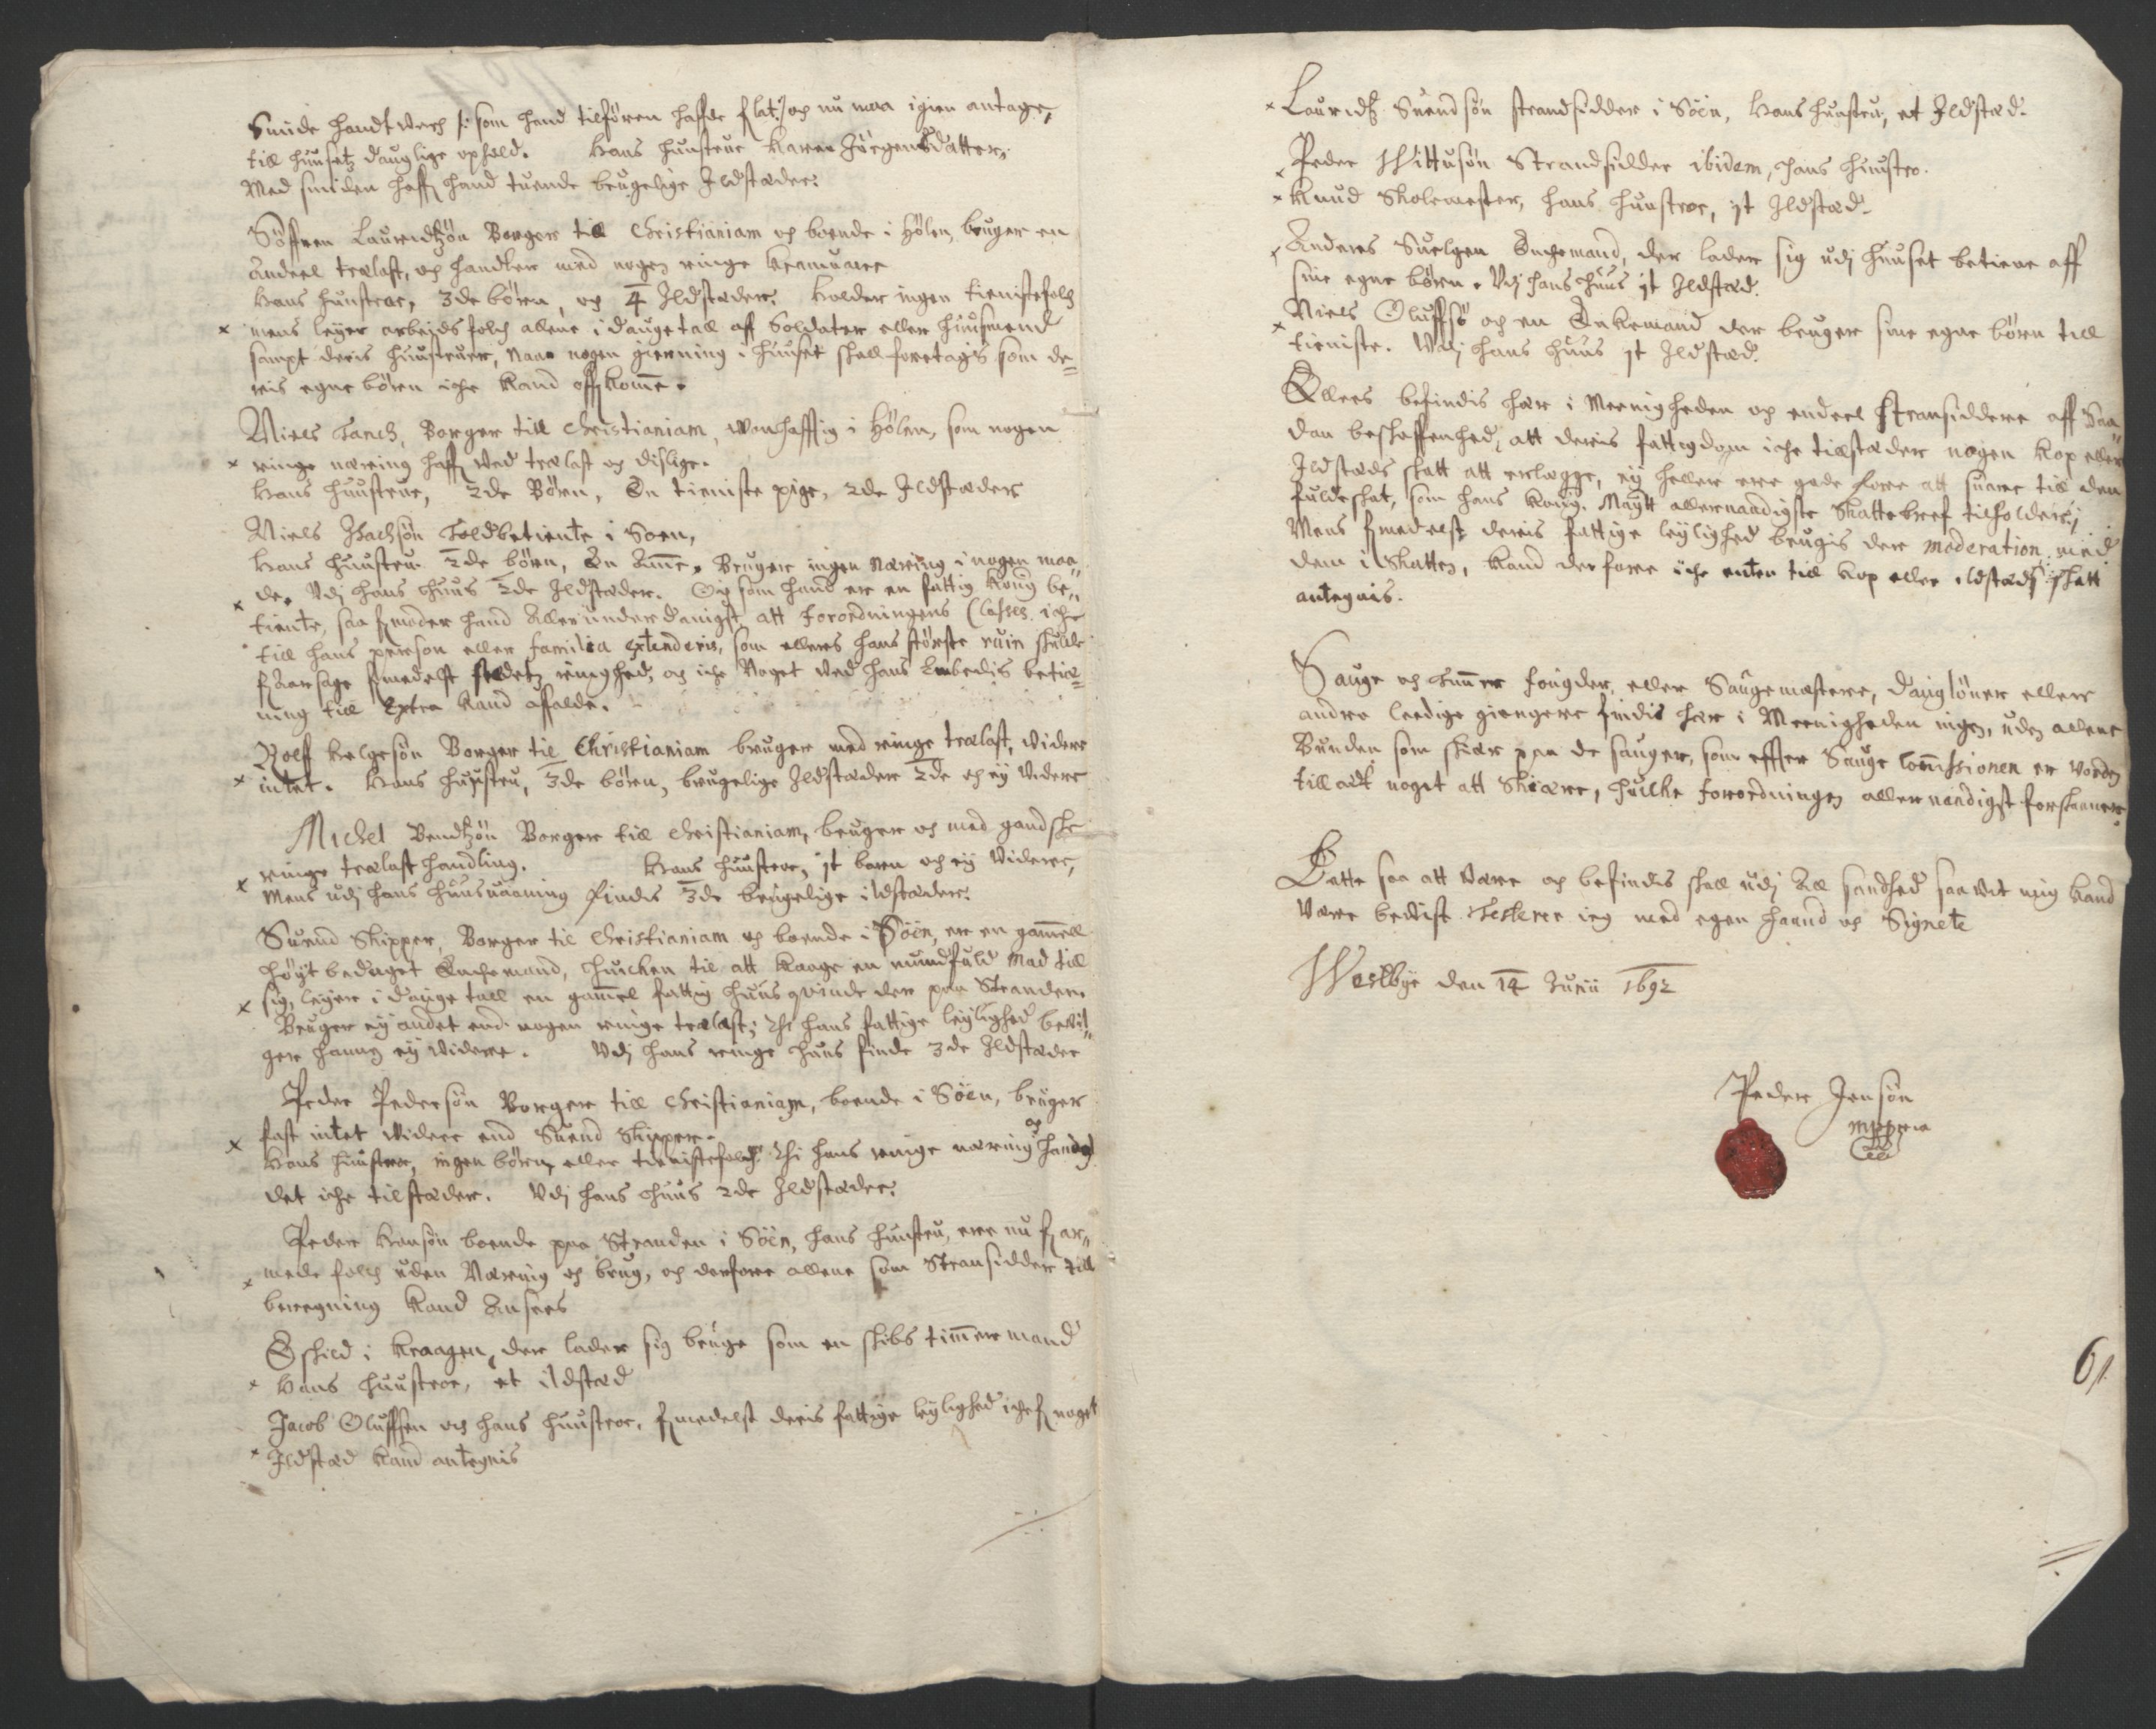 Smide handtverch /: som hand tilforen hafde forlat :/ og nu maa igien antage,
till huusetz dauglige ophold. Hans huustrue Karen Jörgensdatter,
Med smiden haffr hand tuende brugelige Ildstæder.
Söffren Lauridtzön Borger till Christianiam og boende i Hölen, bruger en
andeel trælast, og handler med nogen ringe Kramvare
Hans huustroe, 3de börn, og 4 Ildstæder. Holder ingen tienistefolch
x mens leyer arbeids folch allene i daugetall aff Soldater eller huusmend
sampt deris huustruer, naar nogen gierning i huuset skall foretagis som de=
ris egne börn iche kand affkomme.
Niels Tanch, Borger till Christianiam, wonhafftig i Hölen, som nogen
x ringe næring haffr wed trælast og dislige.
Hans huustrue, 2de Börn, En tieniste pige, 2de Ildstæder
Niels Isachsön Toldbetiente i Soen,
Hans huustrue 2de börn, En Amme. Bruger ingen Næring i nogen maa"
de. Vdj hans huus 2de Ildstæder. Og som hand er en fattig Kong. be"
x tiente, saa formoder hand Allerunderdanigst att Forordningens Classes iche
till hans person eller familia extenderis, som ellers hans störste ruin skulle
foraarsage formedelst stædetz ringhed, og iche Noget wed hans Embedis betie=
ning till Extra kand affalde.
Rolff Helgesön Borger til Christianiam bruger med ringe trælast, widere
x intet. Hans huustru, 3de börn, brugelige Ildstæder 2de og ey widere
Michel Bendtzön Borger till Christianiam, bruger og med gandske
ringe trælast handling. Hans huustroe, jt barn og ey Videre,
x Mens udj hans huusvaaning findis 3de brugelige ildstæder.
Suend Skipper, Borger til Christianiam og boende i Söen, er en gammell
höyt bedaget Enchemand, huilchen til att kaage en mundfuld mad till
x sig, leyer i dauge tall en gammel fattig huus qvinde der paa Stranden.
Bruger ey andet end nogen ringe trælast; Thi hans fattige leylighed bevil"
ger hannem ey widere. Vdj hans ringe huus finde 3de Ildstæder
Peder Pedersön Borger till Christianiam, boende i Söen, bruger
x fast intet widere end Suend Skipper.
Hans huustroe, ingen börn eller tienistefolch. Thi hans ringe næring og handel
det iche tilstæder. Vdj hans huus 2de Ildstæder.
Peder Hansön boende paa Stranden i Söen, hans huustru, ere nu forar"
x mede folch uden Næring og brug, og derfore allene som Stransidder till
beregning kand Ansees
Eskild i Kraagen, der lader sig bruge som en skibs timmermand
x Hans huustroe, et ildstæd
Jacob Oluffsen og hans huustroe, formedelst deris fattige leylighed iche for noget
x Ildstæd kand antegnis
x Lauridtz Suendsön strandsidder i Söen, Hans huustru, et Ildstæd.
x Peder Wittusön Strandsidder ibidem, hans huustro.
x Knud Skolemester, hans huustroe, jt Ildstæd.
x Anders Suelgen Enchemand, der lader sig udj huuset betiene aff
sine egne börn. Vdj hans huus jt Ildstæd.
x Niels Oluffsö og en Enkemand der bruger sine egne börn till
tieniste. Vdj hans huus jt Ildstæd.
Ellers befindis her i Meenigheden og endeel stransiddere aff Saa"
dan beskaffenhed, att deris fattigdom iche tillstæder nogen Kop eller
Ildstæds skatt att erlegge, ey heller ere gode fore att suare till den
fulde skat, som hans Kong. Maytt allernaadigste Skattebref tilholder;
Mens formedelst deris fattige leylighed brugis der moderation med
dem i Skatten, kand derfore iche enten till Kop eller ildstædz skatt
antegnis.
Sauge og tømmer fougder, eller Saugemestere, dauglöner eller
andre leedige giengere findis her i Meenigheden ingen, uden allene
Bunden som skier paa de sauger, som effter Sauge Commissionen er vorden
tillat noget att Skiære, huilke forordningen allernaadigst forskaaner.
Dette saa att være og befindis skall udj All sandhed saavit mig kand
Være bevist Testerer ieg med egen haand og Signete
Westbye den 14 Junii 1692
Peder Jensön
mppria
61